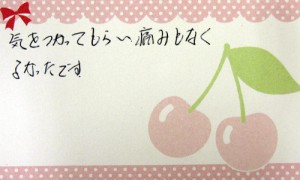 気をつかってもらい痛みもなく
よかったです